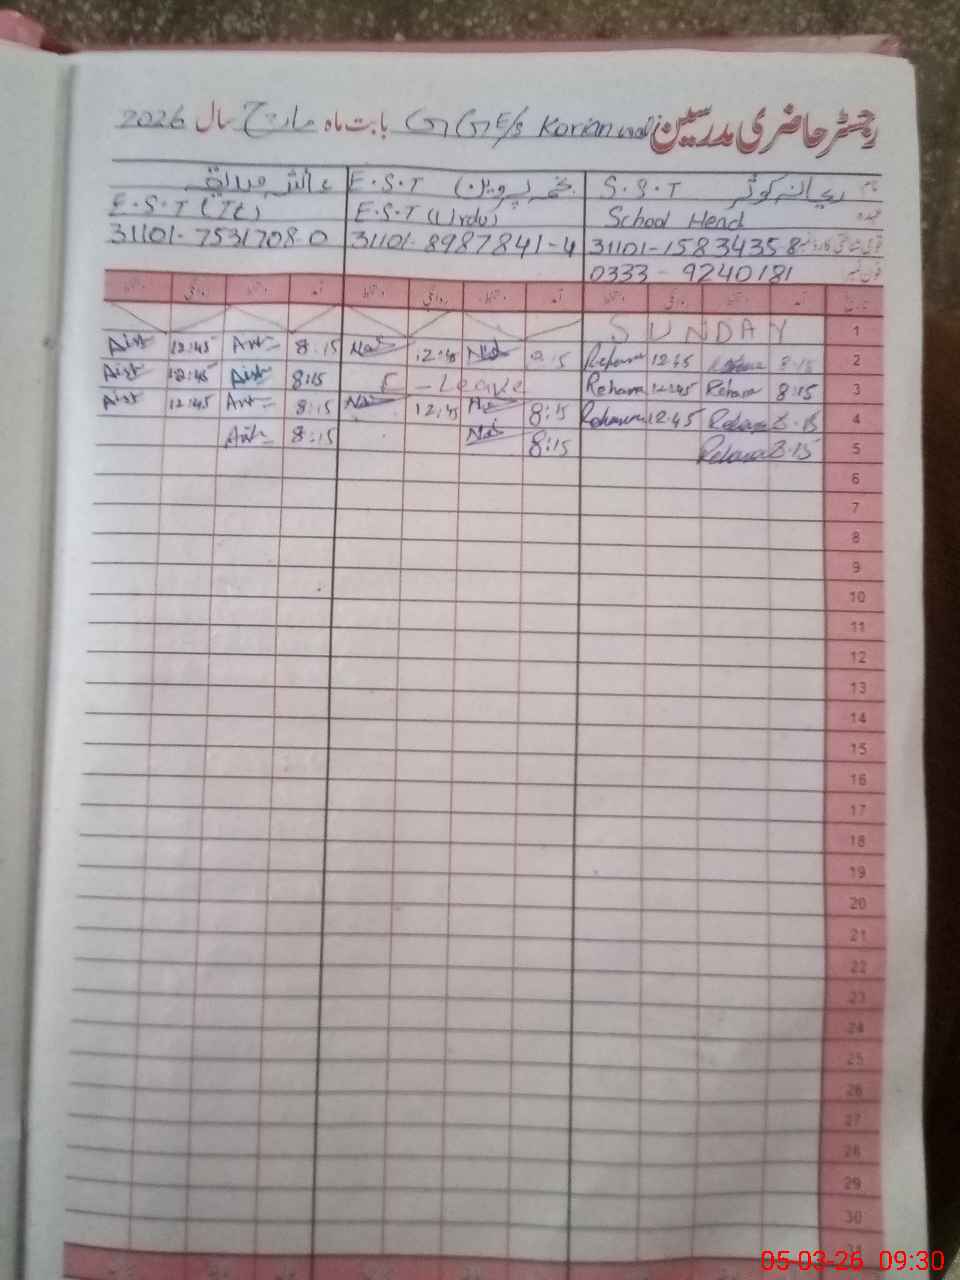 رجسٹر حاضری مدرسین GGE/s Korian wali بابت ماہ مارچ سال 2026
نام ریحانہ کوثر S.S.T نجمہ پروین E.S.T عائشہ صدیقہ
عہدہ School Head E.S.T (Urdu) E.S.T (Tt)
قومی شناختی کارڈ نمبر 31101-1583435-8 31101-8987841-4 31101-7531708-0
فون نمبر 0333-9240181
تاریخ آمد دستخط روانگی دستخط آمد دستخط روانگی دستخط آمد دستخط روانگی دستخط
1 SUNDAY
2 8:15 Rehana 12:45 Rehana 8:15 12:45 8:15 12:45
3 8:15 Rehana 12:45 Rehana C-Leave 8:15 12:45
4 8:15 Rehana 12:45 Rehana 8:15 12:45 8:15 12:45
5 8:15 Rehana 8:15 8:15
6
7
8
9
10
11
12
13
14
15
16
17
18
19
20
21
22
23
24
25
26
27
28
29
30
31
05-03-26 09:30